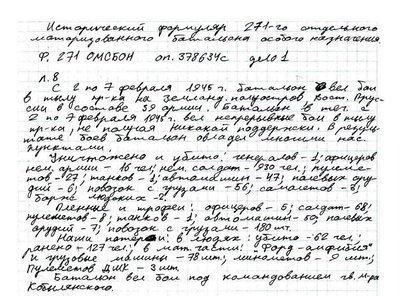 Исторический формуляр 271-го отдельного
моторизованного батальона особого назначения
Ф. 271 ОМСБОН оп. 378634с дело 1
л. 8
С 2 по 7 февраля 1945 г. батальон вел бои
в тылу пр-ка на Земланд. полуостров. Вост. Прус-
сии в составе 39 армии. Батальон в теч. с
2 по 7 февраля 1945г. вел непрерывные бои в тылу
пр-ка, не получая никакой поддержки. В резуль-
тате боев батальон овладел многими нас.
пунктами.
Уничтожено и убито: генералов - 1; офицеров
нем. армии - 16 чел; нем. солдат - 930 чел; пулеме-
тов - 27; танков - 1; автомашин - 47; полевых ору-
дий - 6; повозок с грузами - 56; самолетов - 5;
барж морских - 2.
Пленные и трофеи: офицеров - 5; солдат - 68;
пулеметов - 8; танков - 1; автомашин - 50; полевых
орудий - 7; повозок с грузами - 180 шт.
Наши потери: в людях: убито - 62 чел;
ранено - 127 чел; в мат. части: "Форд-амфибия"
и грузовые машины - 78 шт; минометов - 9 шт;
Пулеметов ДШК - 3 шт.
Батальон вел бои под командованием гв. м-ра